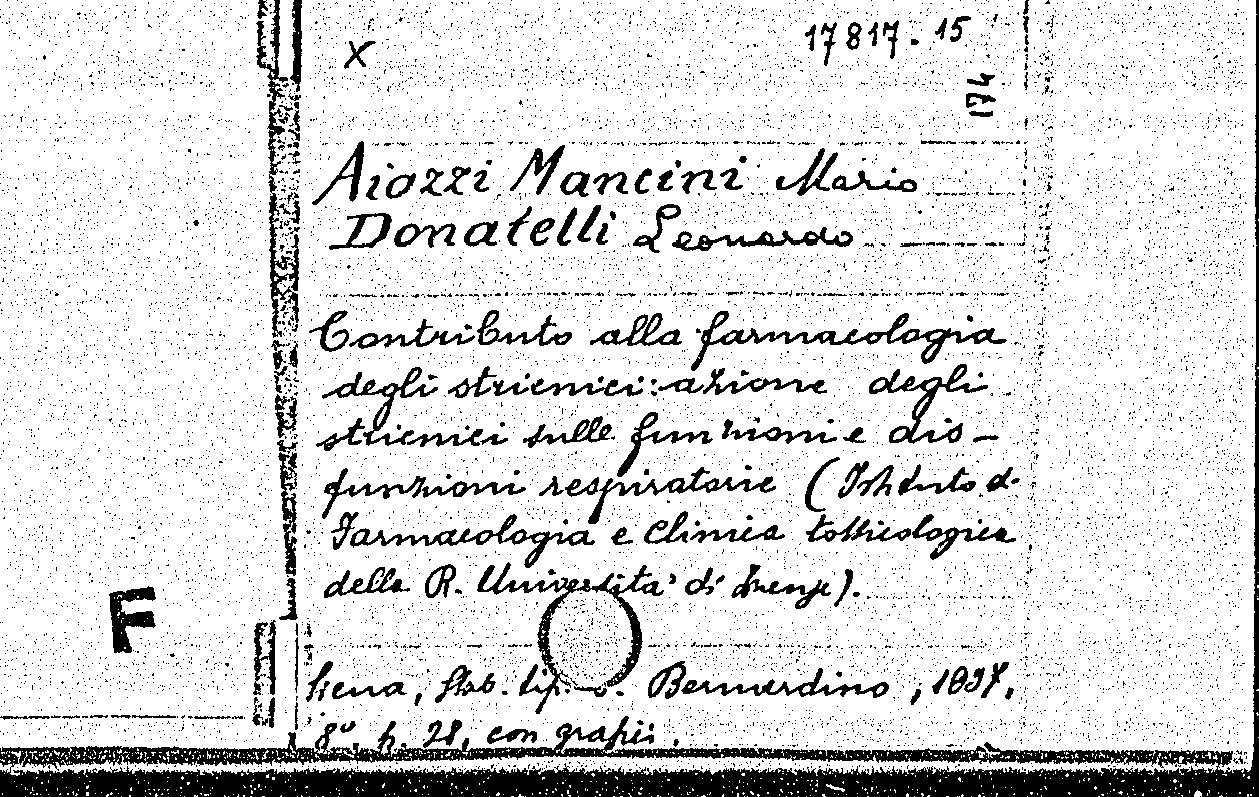 X
17817.15
174
Aiazzi Mancini Mario
Donatelli Leonardo
Contributo alla farmacologia
degli stricnici: azione degli
stricnici sulle funzioni e dis-
funzioni respiratorie (Istituto di
Farmacologia e Clinica tossicologica
della R. Università di Firenze).
F
Siena, Stab. tip. S. Bernardino, 1937,
8°, p. 28, con grafici.